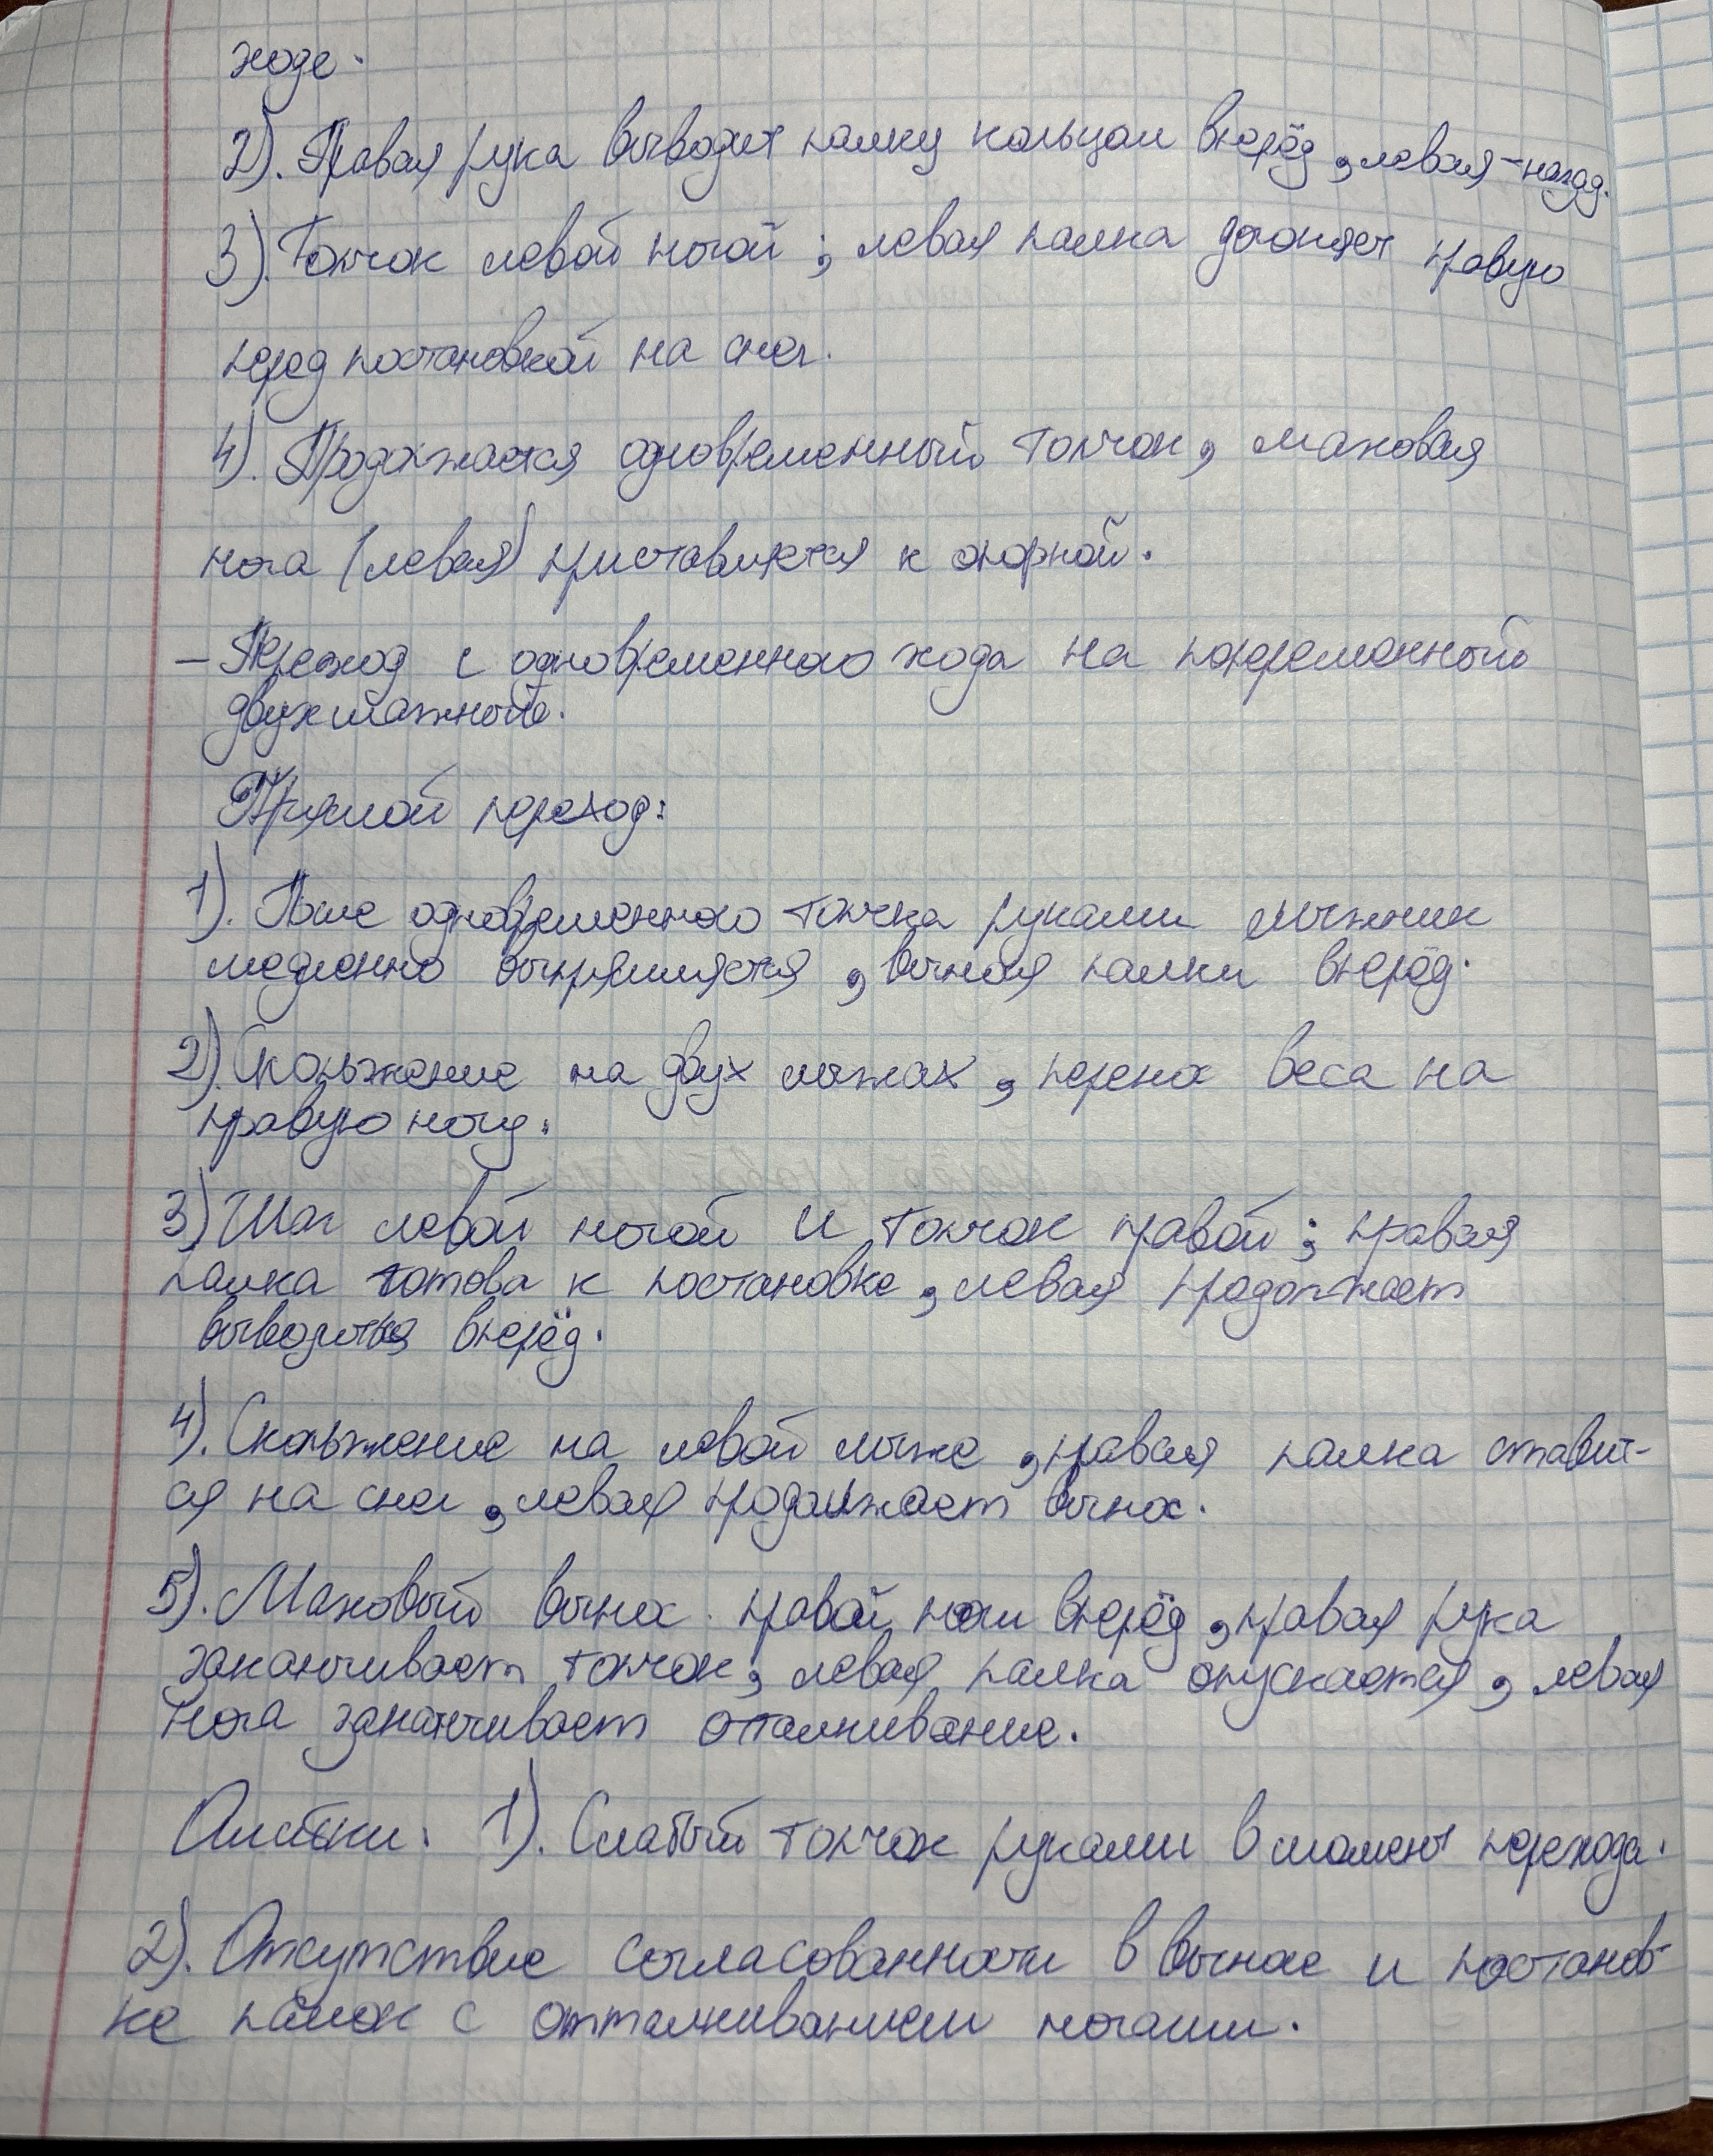 ходе.
2). Правая рука выводит палку кольцом вперёд, левая – назад.
3). Толчок левой ногой; левая палка догоняет правую
перед постановкой на снег.
4). Продолжается одновременный толчок, маховая
нога (левая) приставляется к опорной.
– Переход с одновременного хода на попеременный
двухшажный.
Прямой переход:
1). После одновременного толчка руками лыжник
медленно выпрямляется, вынося палки вперёд.
2). Скольжение на двух лыжах, перенос веса на
правую ногу.
3) Шаг левой ногой и толчок правой; правая
палка готова к постановке, левая продолжает
выводиться вперёд.
4). Скольжение на левой лыже, правая палка ставит-
ся на снег, левая продолжает вынос.
5). Маховый вынос правой ноги вперёд, правая рука
заканчивает толчок, левая палка опускается, левая
нога заканчивает отталкивание.
Ошибки: 1). Слабый толчок руками в момент перехода.
2). Отсутствие согласованности в выносе и постанов-
ке палок с отталкиванием ногами.